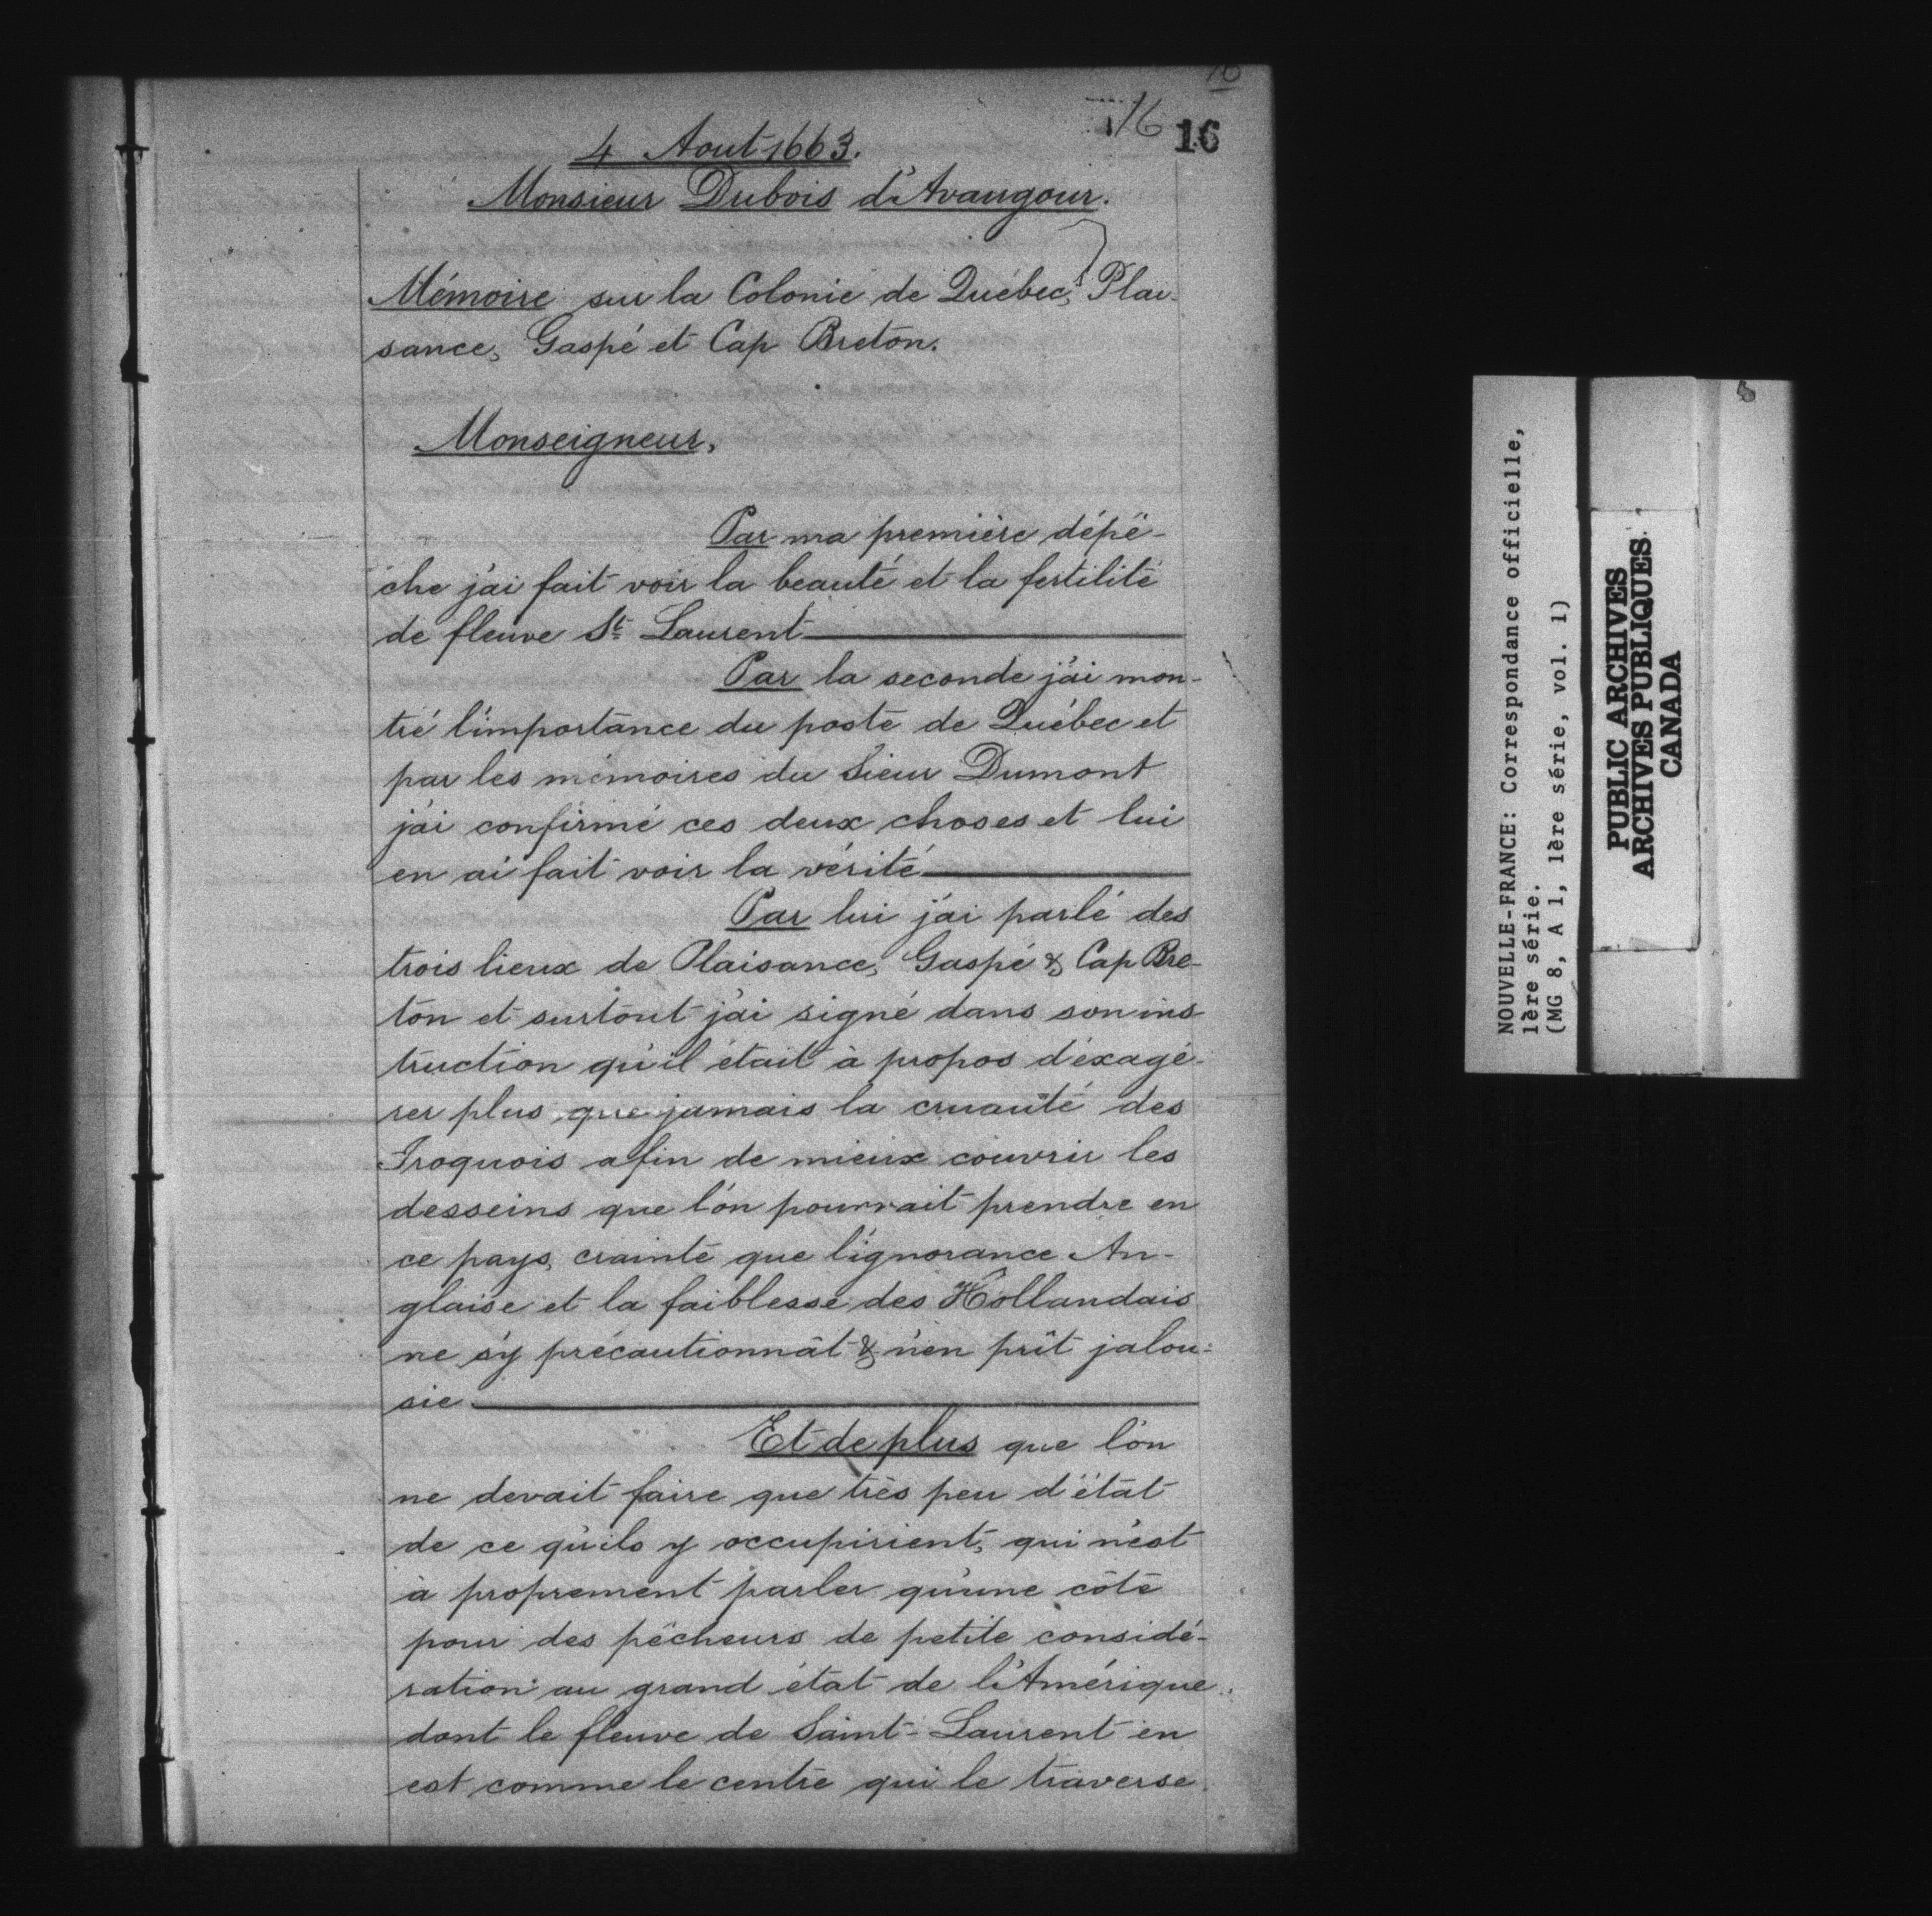 16
16
16
4 Aout 1663.
Monsieur Dubois d'Avaugour.
Mémoire sur la Colonie de Québec, Plai-
sance, Gaspé et Cap Breton.
Monseigneur,
Par ma première dépê-
che j'ai fait voir la beauté et la fertilité
de fleuve St. Laurent
Par la seconde j'ai mon-
tré l'importance du poste de Québec et
par les mémoires du Sieur Dumont
j'ai confirmé ces deux choses et lui
en ai fait voir la vérité
Par lui j'ai parlé des
trois lieux de Plaisance, Gaspé & Cap Bre-
ton et surtout j'ai signé dans son ins-
truction qu'il était à propos d'éxagé-
rer plus que jamais la cruauté des
Iroquois afin de mieux couvrir les
desseins que l'on pourrait prendre en
ce pays, crainte que l'ignorance An-
glaise et la faiblesse des Hollandais
ne s'y précautionnât & n'en prît jalou-
sie.
Et de plus que l'on
ne devait faire que très peu d'état
de ce qu'ils y occupirient, qui n'est
à proprement parler qu'une côte
pour des pêcheurs de petite considé-
ration au grand état de l'Amérique.
dont le fleuve de Saint-Laurent en
est comme le centre qui le traverse.
NOUVELLE-FRANCE: Correspondance officielle,
1ère série.
(MG 8, A 1, 1ère série, vol. 1)
PUBLIC ARCHIVES
ARCHIVES PUBLIQUES
CANADA